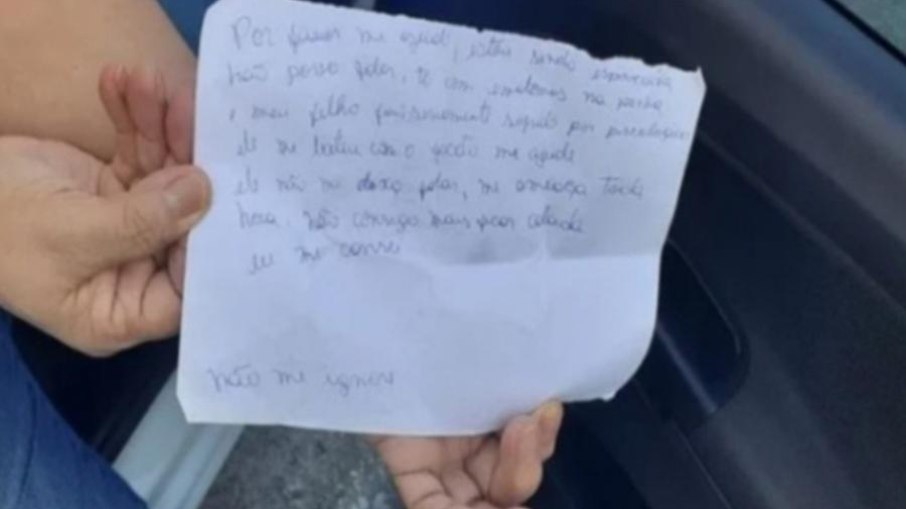 Por favor me ajude, estou sendo espancada
não posso falar, to com hematomas na
e meu filho por psicologico
ele me bateu com o me ajude
ele não me deixa falar, me ameaça toda
hora. não consigo mais ficar calada
eu me cansei
não me ignore